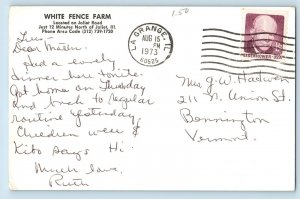 1.50
WHITE FENCE FARM
Located on Joliet Road
Just 12 Minutes North of Joliet, Ill.
Phone Area Code (312) 739-1720
LA GRANGE, IL
AUG 15
PM
1973
60525
EISENHOWER · USA
Dear
Had a lovely
dinner here tonite.
Got home on Thursday
and back to regular
routine yesterday
Children well &
Kibo says Hi.
Much love,
Ruth
Mrs. G. W. Hadwen
211 N. Union St.
Bennington
Vermont.